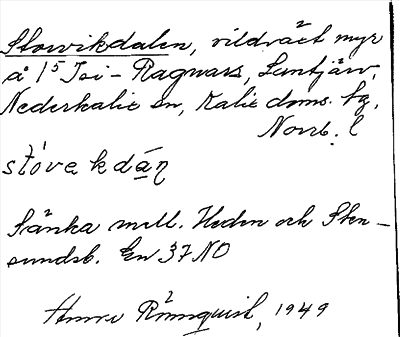 Storvikdalen, vildväxt myr
å 1⁵ Toi-Ragnars, Lantjärv,
Nederkalix sn, Kalix doms. tg,
Norrb. l
stó̀vɐkdán
Sänka mell. Heden och Sten-
sundsb. Ek 37 NO
Rönnquist, 1949